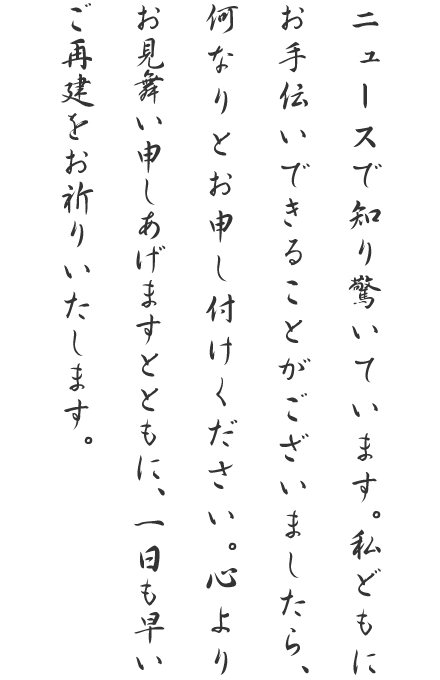 ニュースで知り驚いています。私どもに
お手伝いできることがございましたら、
何なりとお申し付けください。心より
お見舞い申しあげますとともに、一日も早い
ご再建をお祈りいたします。